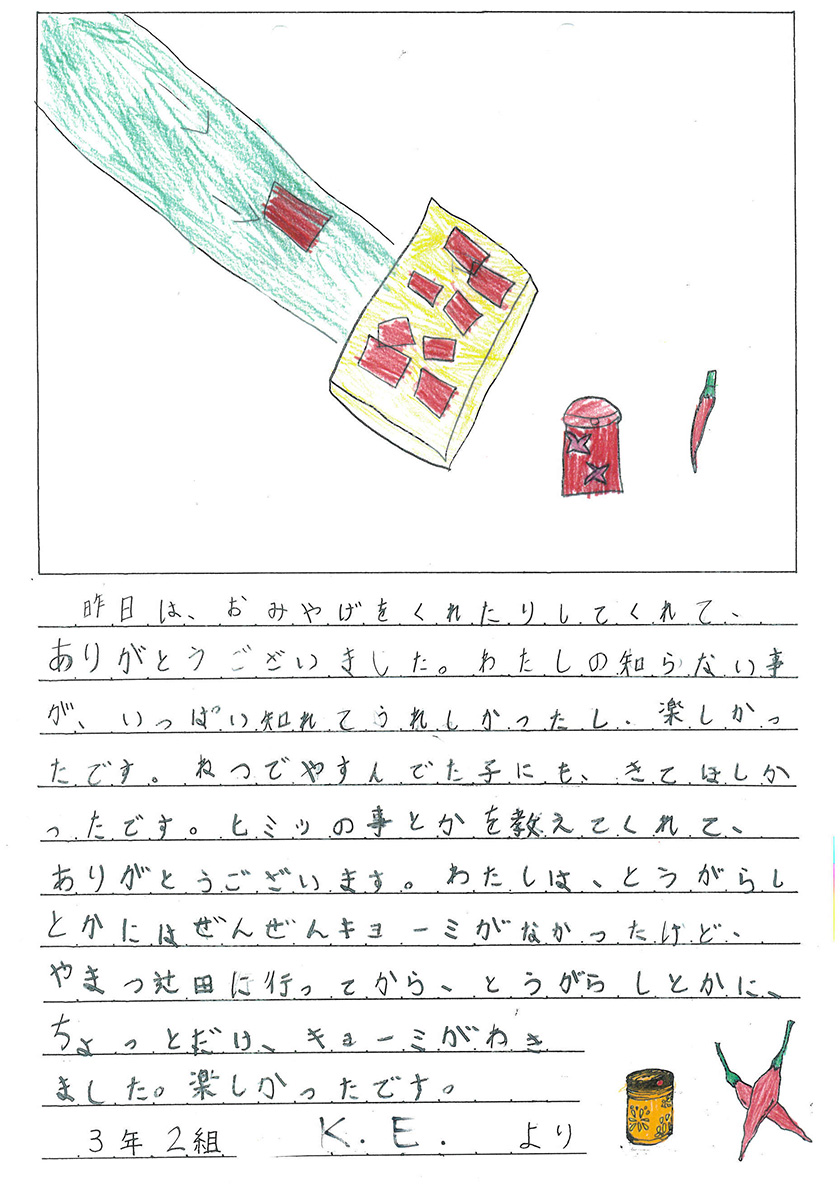 昨日は、おみやげをくれたりしてくれて、
ありがとうございました。わたしの知らない事
が、いっぱい知れてうれしかったし、楽しかっ
たです。ねつでやすんでた子にも、きてほしか
ったです。ヒミツの事とかを教えてくれて、
ありがとうございます。わたしは、とうがらし
とかにはぜんぜんキョーミがなかったけど、
やまつ辻田に行ってから、とうがらしとかに、
ちょっとだけ、キョーミがわき
ました。楽しかったです。
3年2組 K.E. より